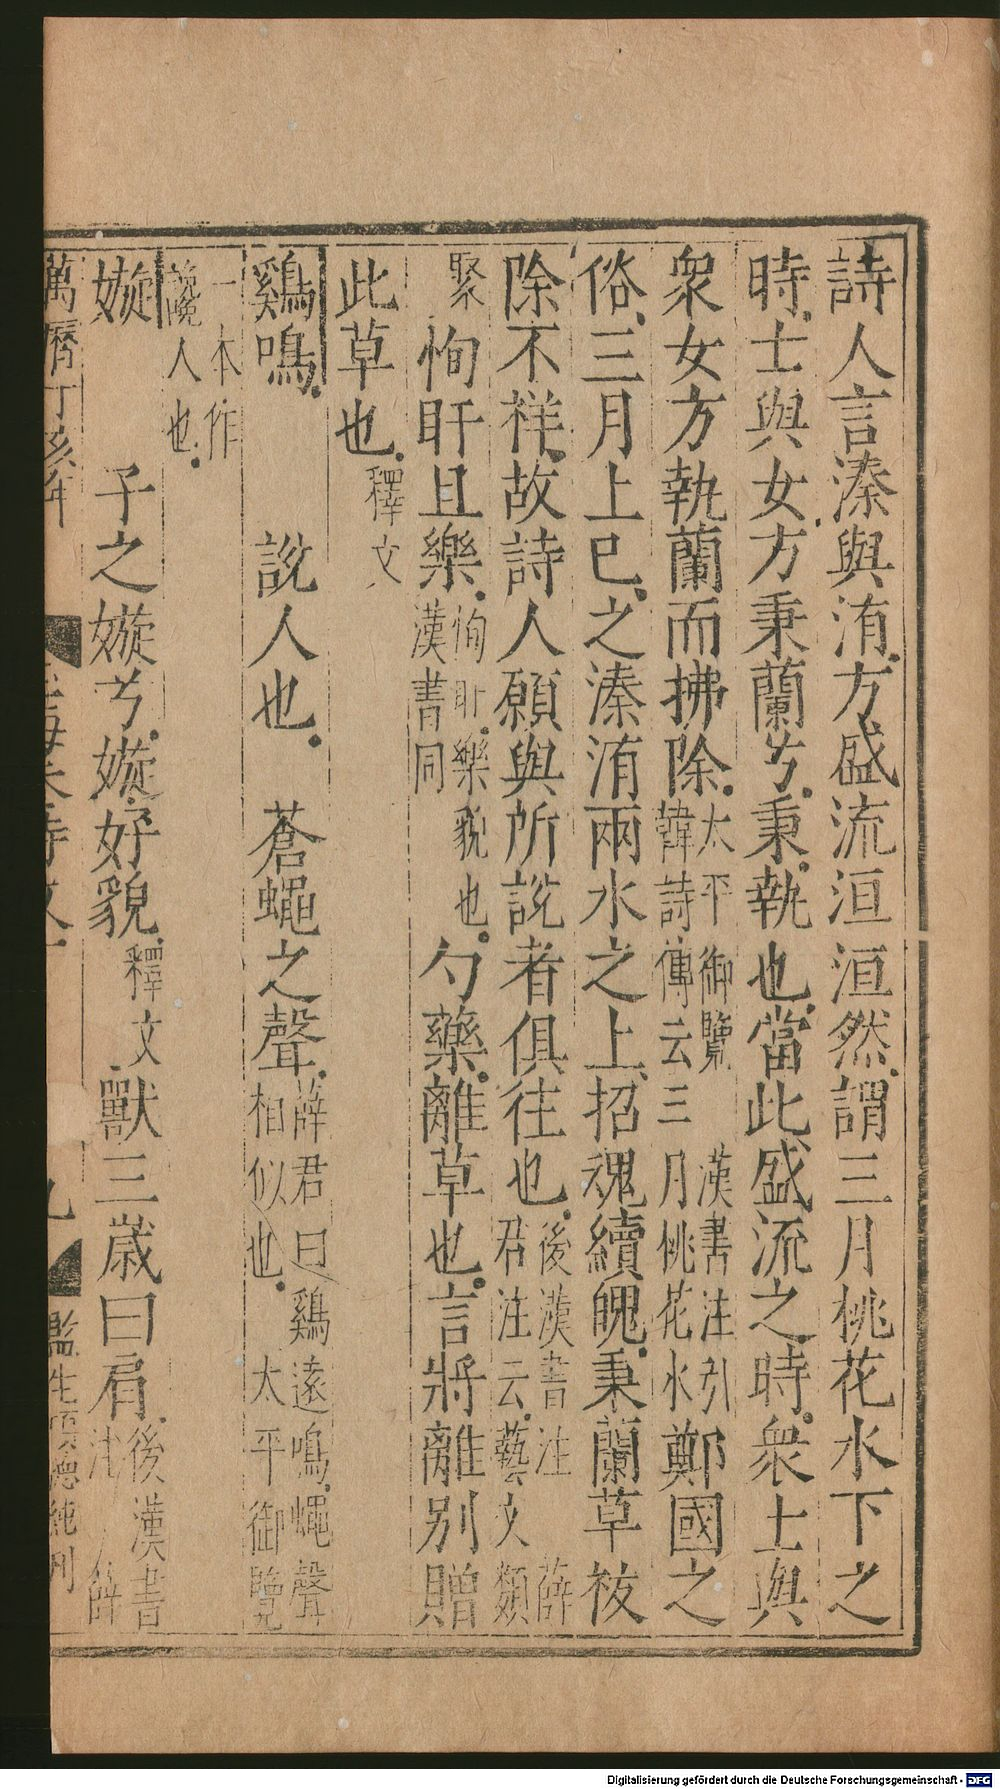 詩人言溱與洧方盛流洹洹然謂三月桃花水下之
時士與女方秉蘭兮秉執也當此盛流之時衆士與
衆女方執蘭而拂除太平御覽韓詩傳云三月桃花水漢書注引鄭國之
俗三月上巳之溱洧兩水之上招魂續魄秉蘭草祓
除不祥故詩人願與所說者俱往也後漢書注薛君注云藝文類
聚恂盱且樂恂盱樂貌也漢書同勺藥離草也言將離別贈
此草也釋文
鷄鳴說人也蒼蠅之聲薛君曰鷄遠鳴蠅聲相似也太平御覽
一本作人也
嫙子之嫙兮嫙好貌釋文獸三歲曰肩後漢書注薛
萬曆丁亥年
九
監生項德純刊
Digitalisierung gefördert durch die Deutsche Forschungsgemeinschaft - DFG